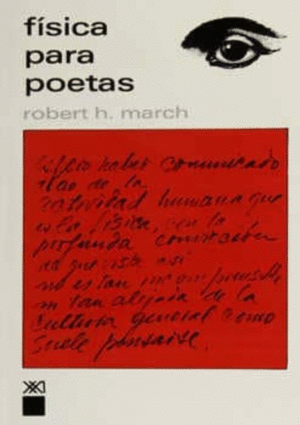 física
para
poetas
robert h. march
haber comunicado
algo de la
actividad humana que
es la física, con la
profunda convicción
de que vista así
no es tan incomprensible
ni tan alejada de la
cultura general como
suele pensarse.